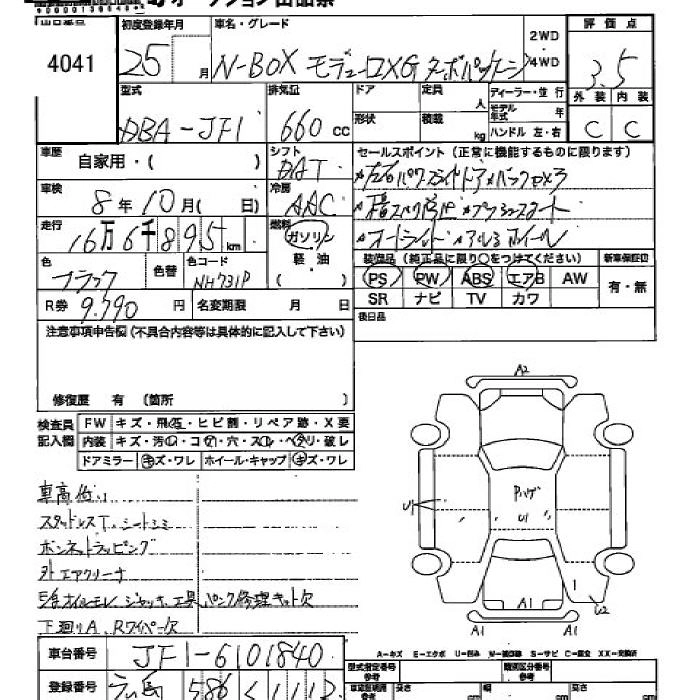 オークション出品票
4041
初度登録年月
25 月
車名・グレード
N-BOX モデューロX G ターボパッケージ
2WD
4WD
評価点
3.5
外装 内装
C C
型式
DBA-JF1
排気量
660 cc
ドア
形状
定員 人
積載 kg
ディーラー・並行
モデル年式 年
ハンドル 左・右
車歴
自家用・( )
シフト
DAT
冷房
AAC
セールスポイント(正常に機能するものに限ります)
左右パワスライドドア バックカメラ
プッシュスタート
オートライト アルミホイール
車検
8年10月( 日)
走行
16万6千895km
燃料
ガソリン
軽・油
( )
色
ブラック
色替
色コード
NH731P
装備品(純正品に限り○をつけてください)
PS PW ABS エアB AW
SR ナビ TV カワ
新車保証書
有・無
R券 9.790 円
名変期限 月 日
後日品
注意事項申告欄(不具合内容等は具体的に記入して下さい)
修復歴 有 (箇所 )
検査員記入欄
FW キズ・飛石・ヒビ割・リペア跡・X要
内装 キズ・汚レ・コゲ・穴・スレ・ヘタリ・破レ
ドアミラー キズ・ワレ ホイール・キャップ キズ・ワレ
車高低い
スタッドレスT、シートシミ
ボンネットラッピング
外エアクリーナ
オイルモレ、ジャッキ、工具、パンク修理キット欠
下廻りA、Rワイパー欠
A2
U1
Pハゲ
U1
U2
A1
A1 A1
A-キズ E-エクボ U-凹み W-補修跡 S-サビ C-腐食 XX-交換済
車台番号 JF1-6101840
型式指定番号 参考
類別区分番号 参考
登録番号 広島 586
長さ cm
幅 cm
高さ cm